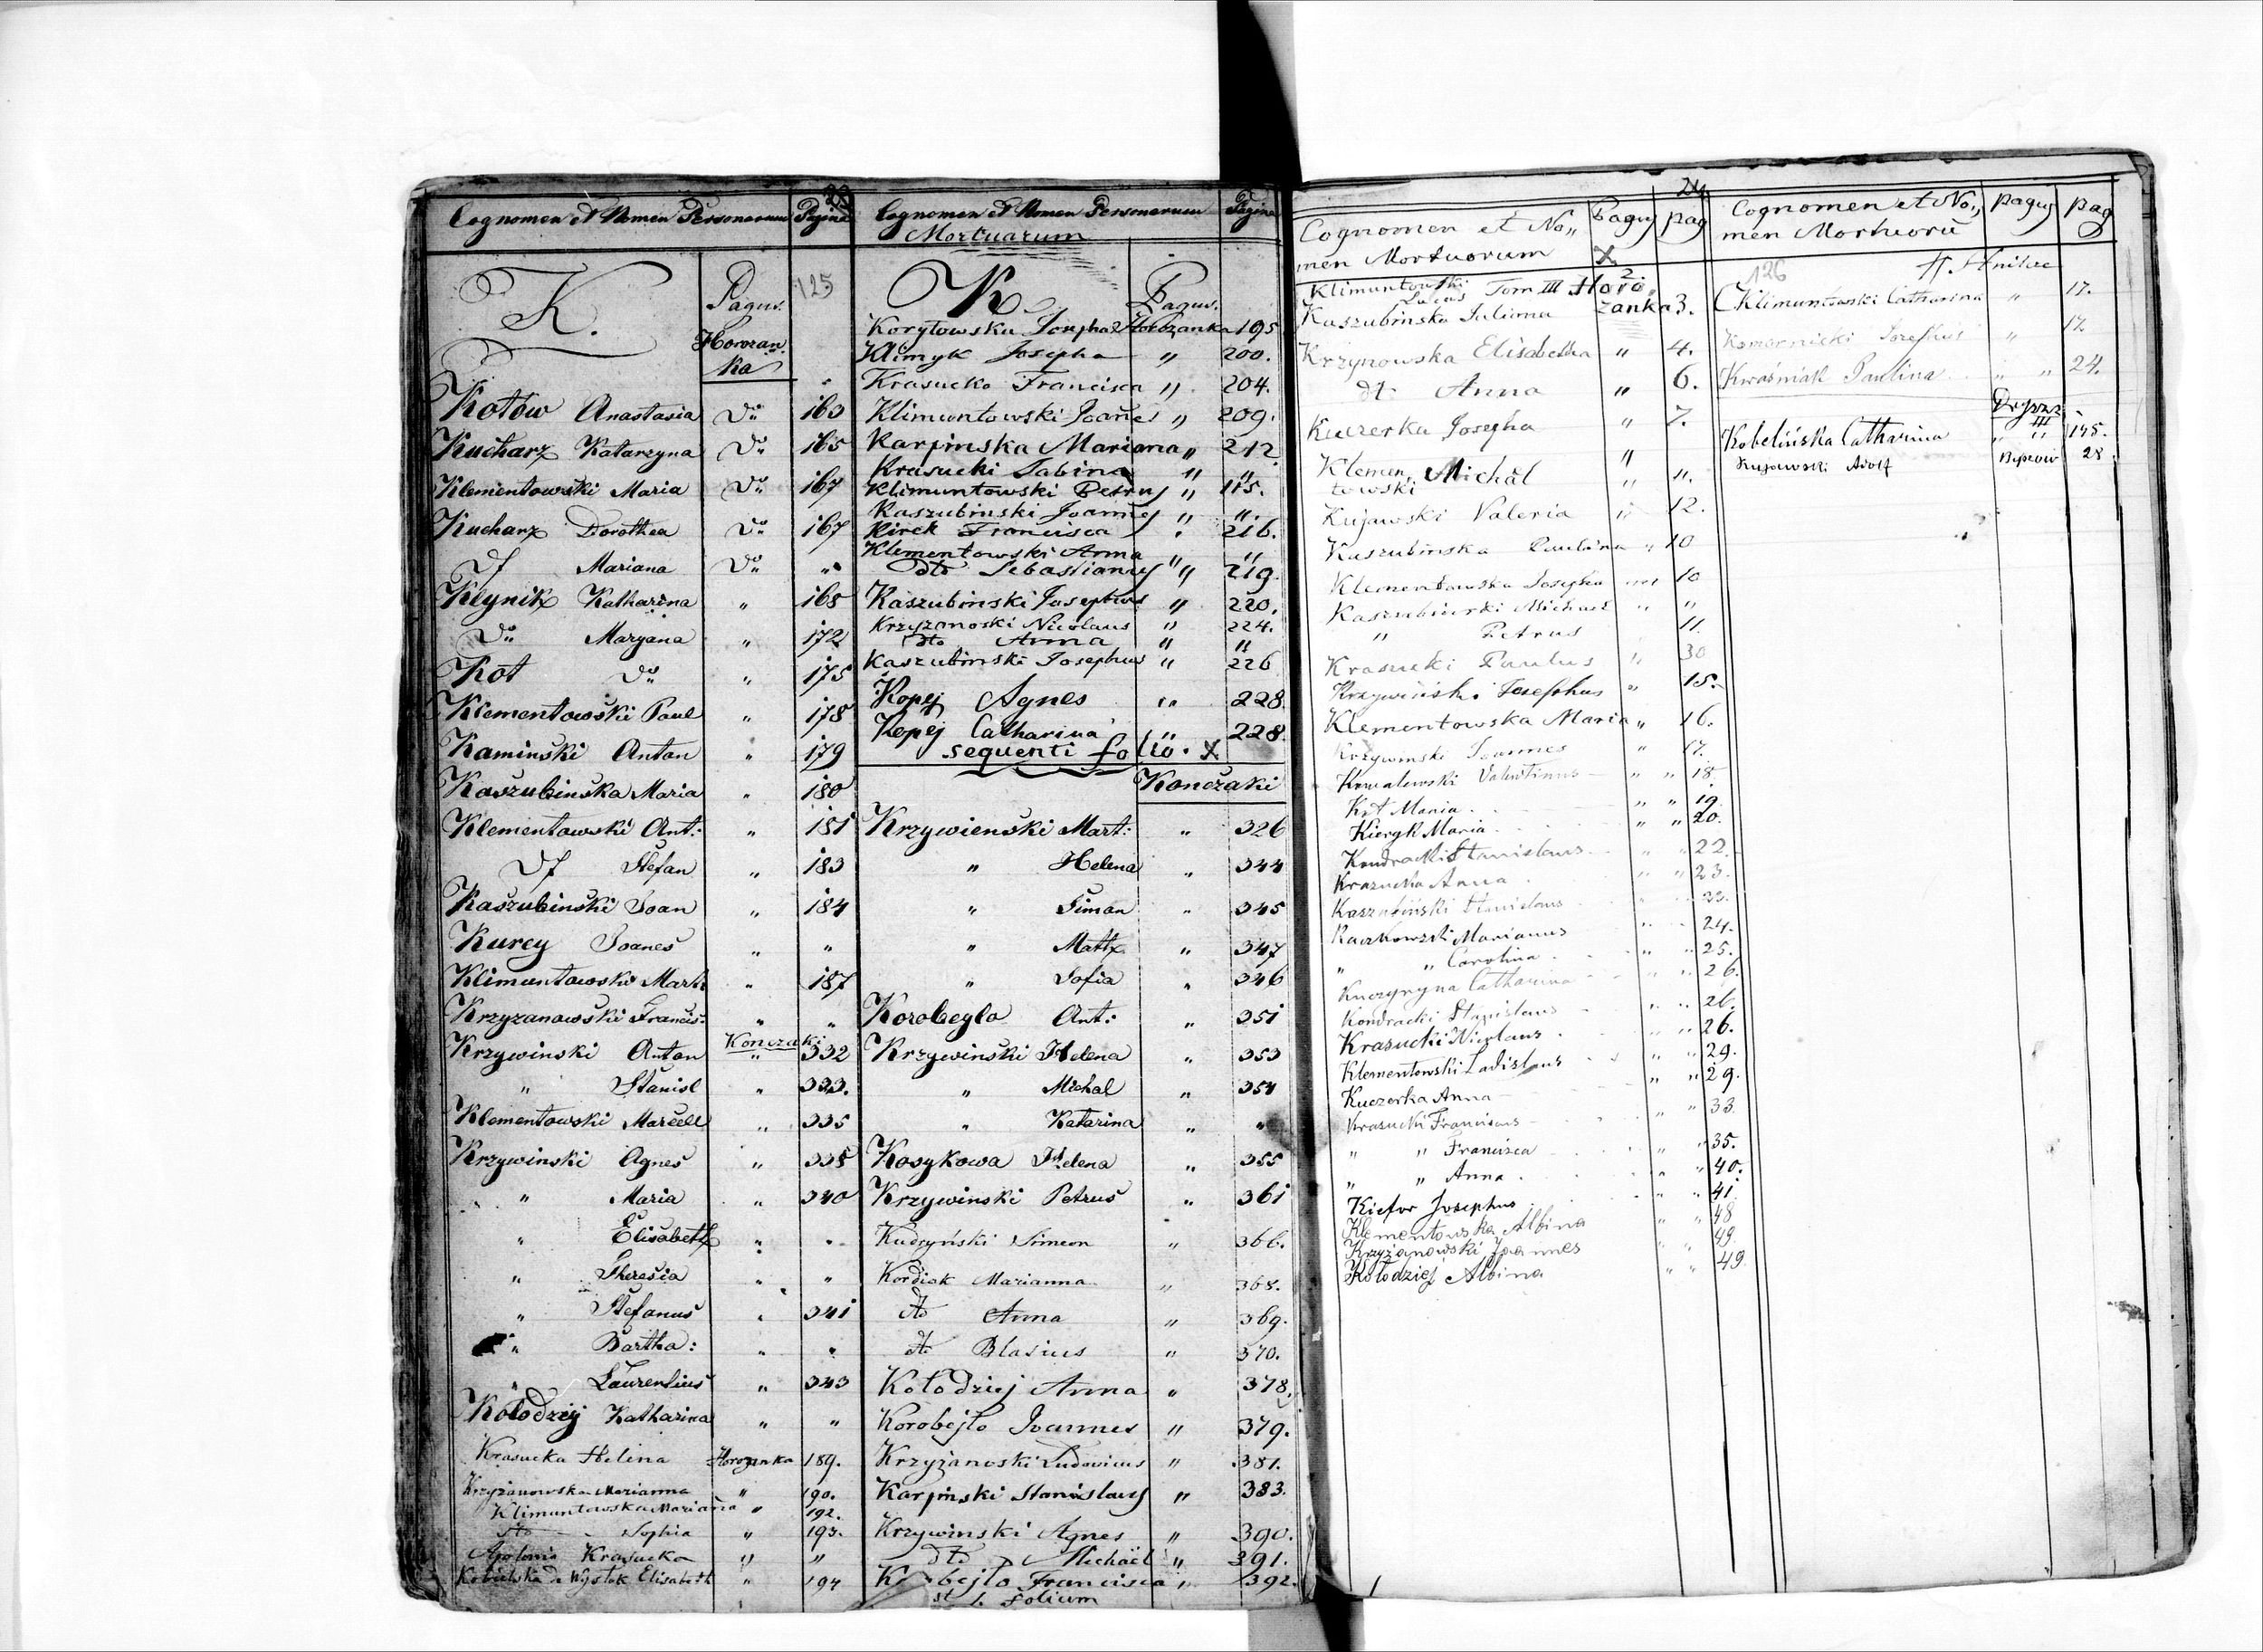 23
Cognomen et Nomen Personarum Pagina
K. Pagus. 125
Horożanka
Kotów Anastasia Do 163
Kucharz Katarzyna Do 165
Klementowski Maria Do 167
Kucharz Dorothea Do 167
Mariana Do "
Klynik Katharina " 168
Do Maryana " 172
Kot Do " 175
Klementowski Paul " 178
Kaminski Anton " 179
Kaszubinska Maria " 180
Klementowski Ant: " 181
Stefan " 183
Kaszubinski Joan " 184
Kurcy Joanes " "
Klimuntowski Mart: " 187
Krzyzanowski Francis: " "
Konczaki
Krzywinski Anton " 332
" Stanisl " 333.
Klementowski Marcell " 335
Krzywinski Agnes " 338
" Maria " 340
" Elisabeth " "
" Theresia " "
" Stefanus " 341
" Bartho: " "
" Laurentius " 343
Kołodziej Katharina " "
Krasucka Helina Horozanka 189.
Krzyżanowska Marianna " 190.
Klimuntowska Marianna " 192.
dto Sophia " 193.
Apolonia Krasucka " "
Elisabeth " 194
Cognomen et Nomen Personarum Pagina
Mortuarum
K Pagus.
Korytowska Josepha Horożanka 195
Klimyk Josepha " 200.
Krasucka Francisca " 204.
Klimuntowski Joańes " 209.
Karpinska Mariana " 212
Krasucki Sabina " "
Klimuntowski Petrus " 115.
Kaszubinski Joannes " "
Kirek Francisca " 216.
Klementowski Anna " "
dto Sebastianus " 219.
Kaszubinski Josephus " 220.
Krzyzanoski Nicolaus " 224.
dto Anna " "
Kaszubinski Josephus " 226
Kopej Agnes " 228
Kopej Catharina " 228.
sequenti folio. X
Kończaki
Krzywienski Mart: " 326
" Helena " 344
" Siman " 345
" Math " 347
" Sofia " 346
Korobeylo Ant: " 351
Krzywinski Helena " 353
" Michal " 354
" Katarina " "
Kosykowa Helena " 355
Krzywinski Petrus " 361
Kudryński Simeon " 366.
Kordiak Marianna " 368.
dto Anna " 369.
dto Blasius " 370.
Kołodziej Anna " 378.
Korobejło Joannes " 379.
Krzyżanoski Ludovicus " 381.
Karpinski Stanislaus " 383.
Krzywinski Agnes " 390.
dto Michaël " 391.
Francisca " 392.
folium
24
Cognomen et No„ Pagus pag
men Mortuorum X
Klimuntowski Lucas Tom III Horo 2
Kaszubinska Juliona zanka 3.
Krzynowska Elisabetha " 4.
dt Anna " 6.
Kuczerka Josepha " 7.
Klementowski Michał " "
Kujawski Valeria " 12.
Kaszubinska Paulina " 10
Klementowska Josepha " 10
Kaszubinski Michael " "
" Petrus 11.
Krasucki Paulus " 30
Krzywiński Josephus " 15.
Klementowska Maria " 16.
Krzywinski Joannes " 17.
Kowalewski Valentinus " " 18.
Kot Maria " " 19.
Kieryk Maria " " 20.
Kondracki Stanislaus " " 22.
Krasucka Anna " " 23.
Kaszubiński Stanislaus " " 23.
Kaczkowski Marianus " " 24.
" " Carolina " " 25.
Catharina " " 26.
Kondracki Stanislaus " " 26.
Krasucki Nicolaus " " 26.
Klementowski Ladislaus " " 29.
Kuczerka Anna " " 29.
Krasucki Franciscus " " 33.
" " Francisca " " 35.
" " Anna " " 40.
Kiefor Josephus " " 41
Klementowska Albina " " 48
Krzyżanowski Joannes " " 49.
Kołodziej Albina " " 49
Cognomen et No„ pagus pag
men Mortuorū
126
Klimuntowski Catharina " 17.
Komornicki Josephus " 17.
Kwaśniak Paulina " " 24.
III
Kobelińska Catharina " " 145.
Kujawski Adolf 28.